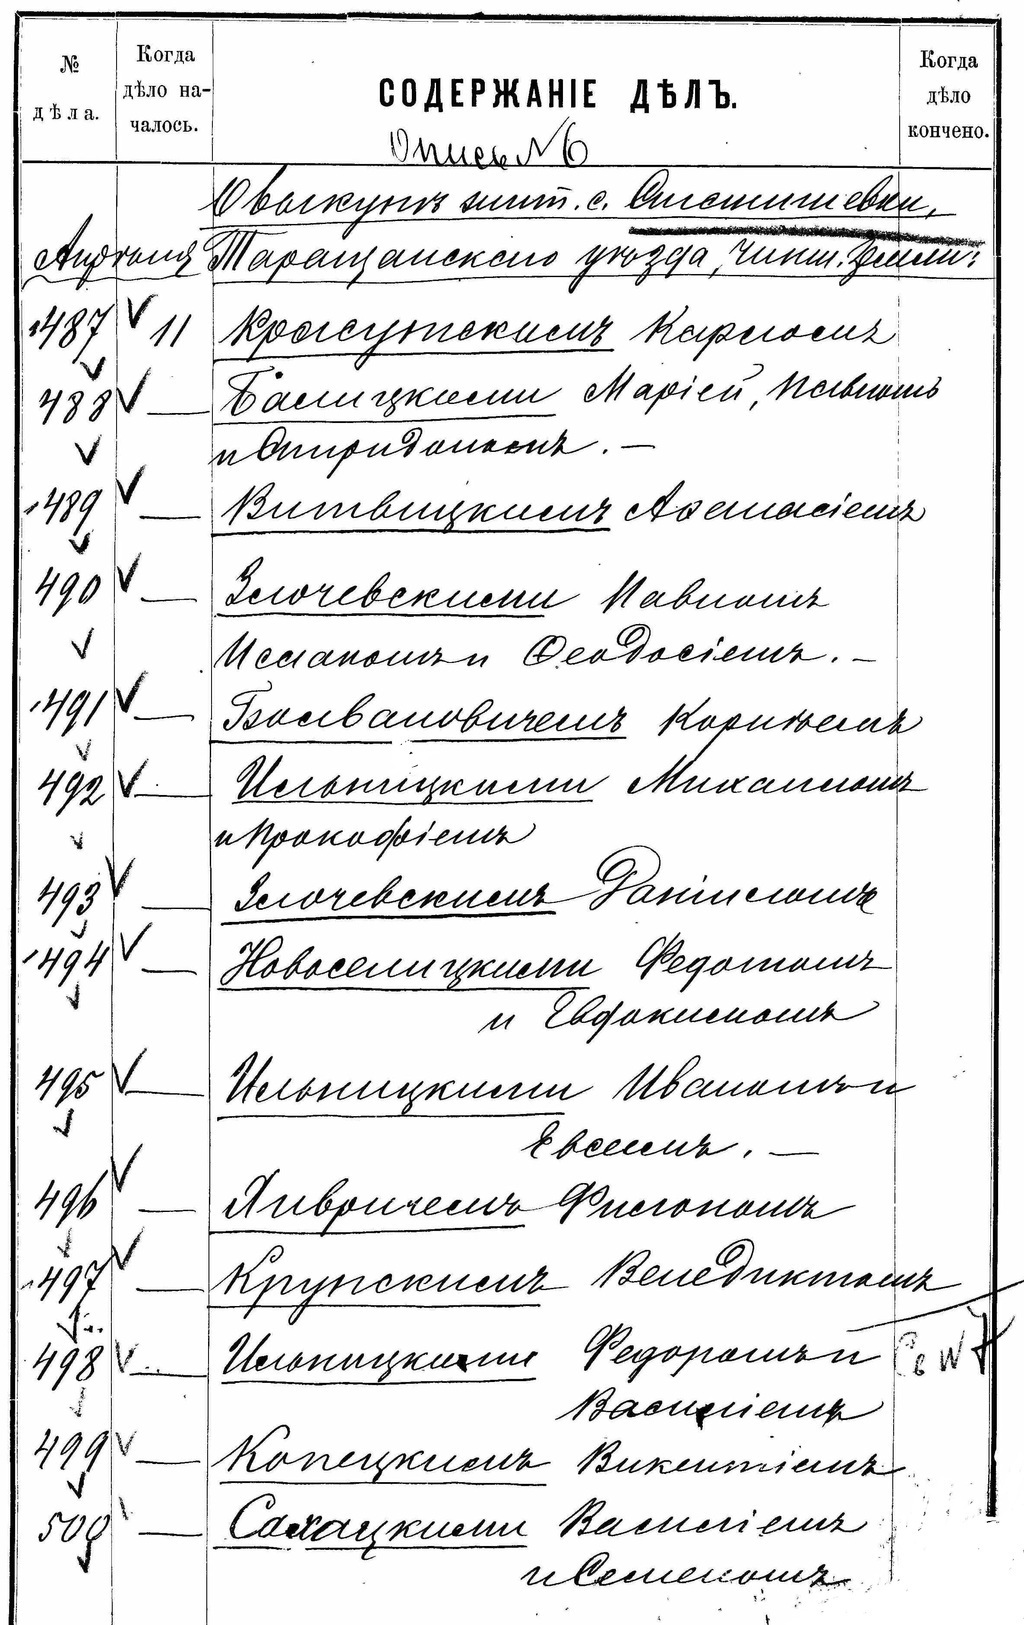 № дѣла.
Когда дѣло на-чалось.
СОДЕРЖАНІЕ ДѢЛЪ.
Когда дѣло кончено.
Опись № 6
О выкупѣ жит. с.
Апрѣля Таращанскаго уѣзда, чинш. земли:
1487 11 Красутскимъ Карпомъ
488 — Балицкими Маріей, Павломъ
и Спиридономъ. —
1489 — Витвицкимъ Афанасіемъ
490 — Злочевскими Павломъ
Иваномъ и Ѳеодосіемъ. —
1491 — Болвановичемъ Корнѣемъ
492 — Ильницкими Михаиломъ
и Прокофіемъ
493 — Злочевскимъ Даніиломъ
1494 — Новоселицкими Федотомъ
и Евдокимомъ
495 — Ильницкими Иваномъ и
Евсеемъ. —
496 — Филономъ
1497 — Крупскимъ Венедиктомъ
498 — Ильницкими Федоромъ и
Василіемъ
499 — Копецкимъ Викентіемъ
500 — Сахацкими Василіемъ
и Семеномъ